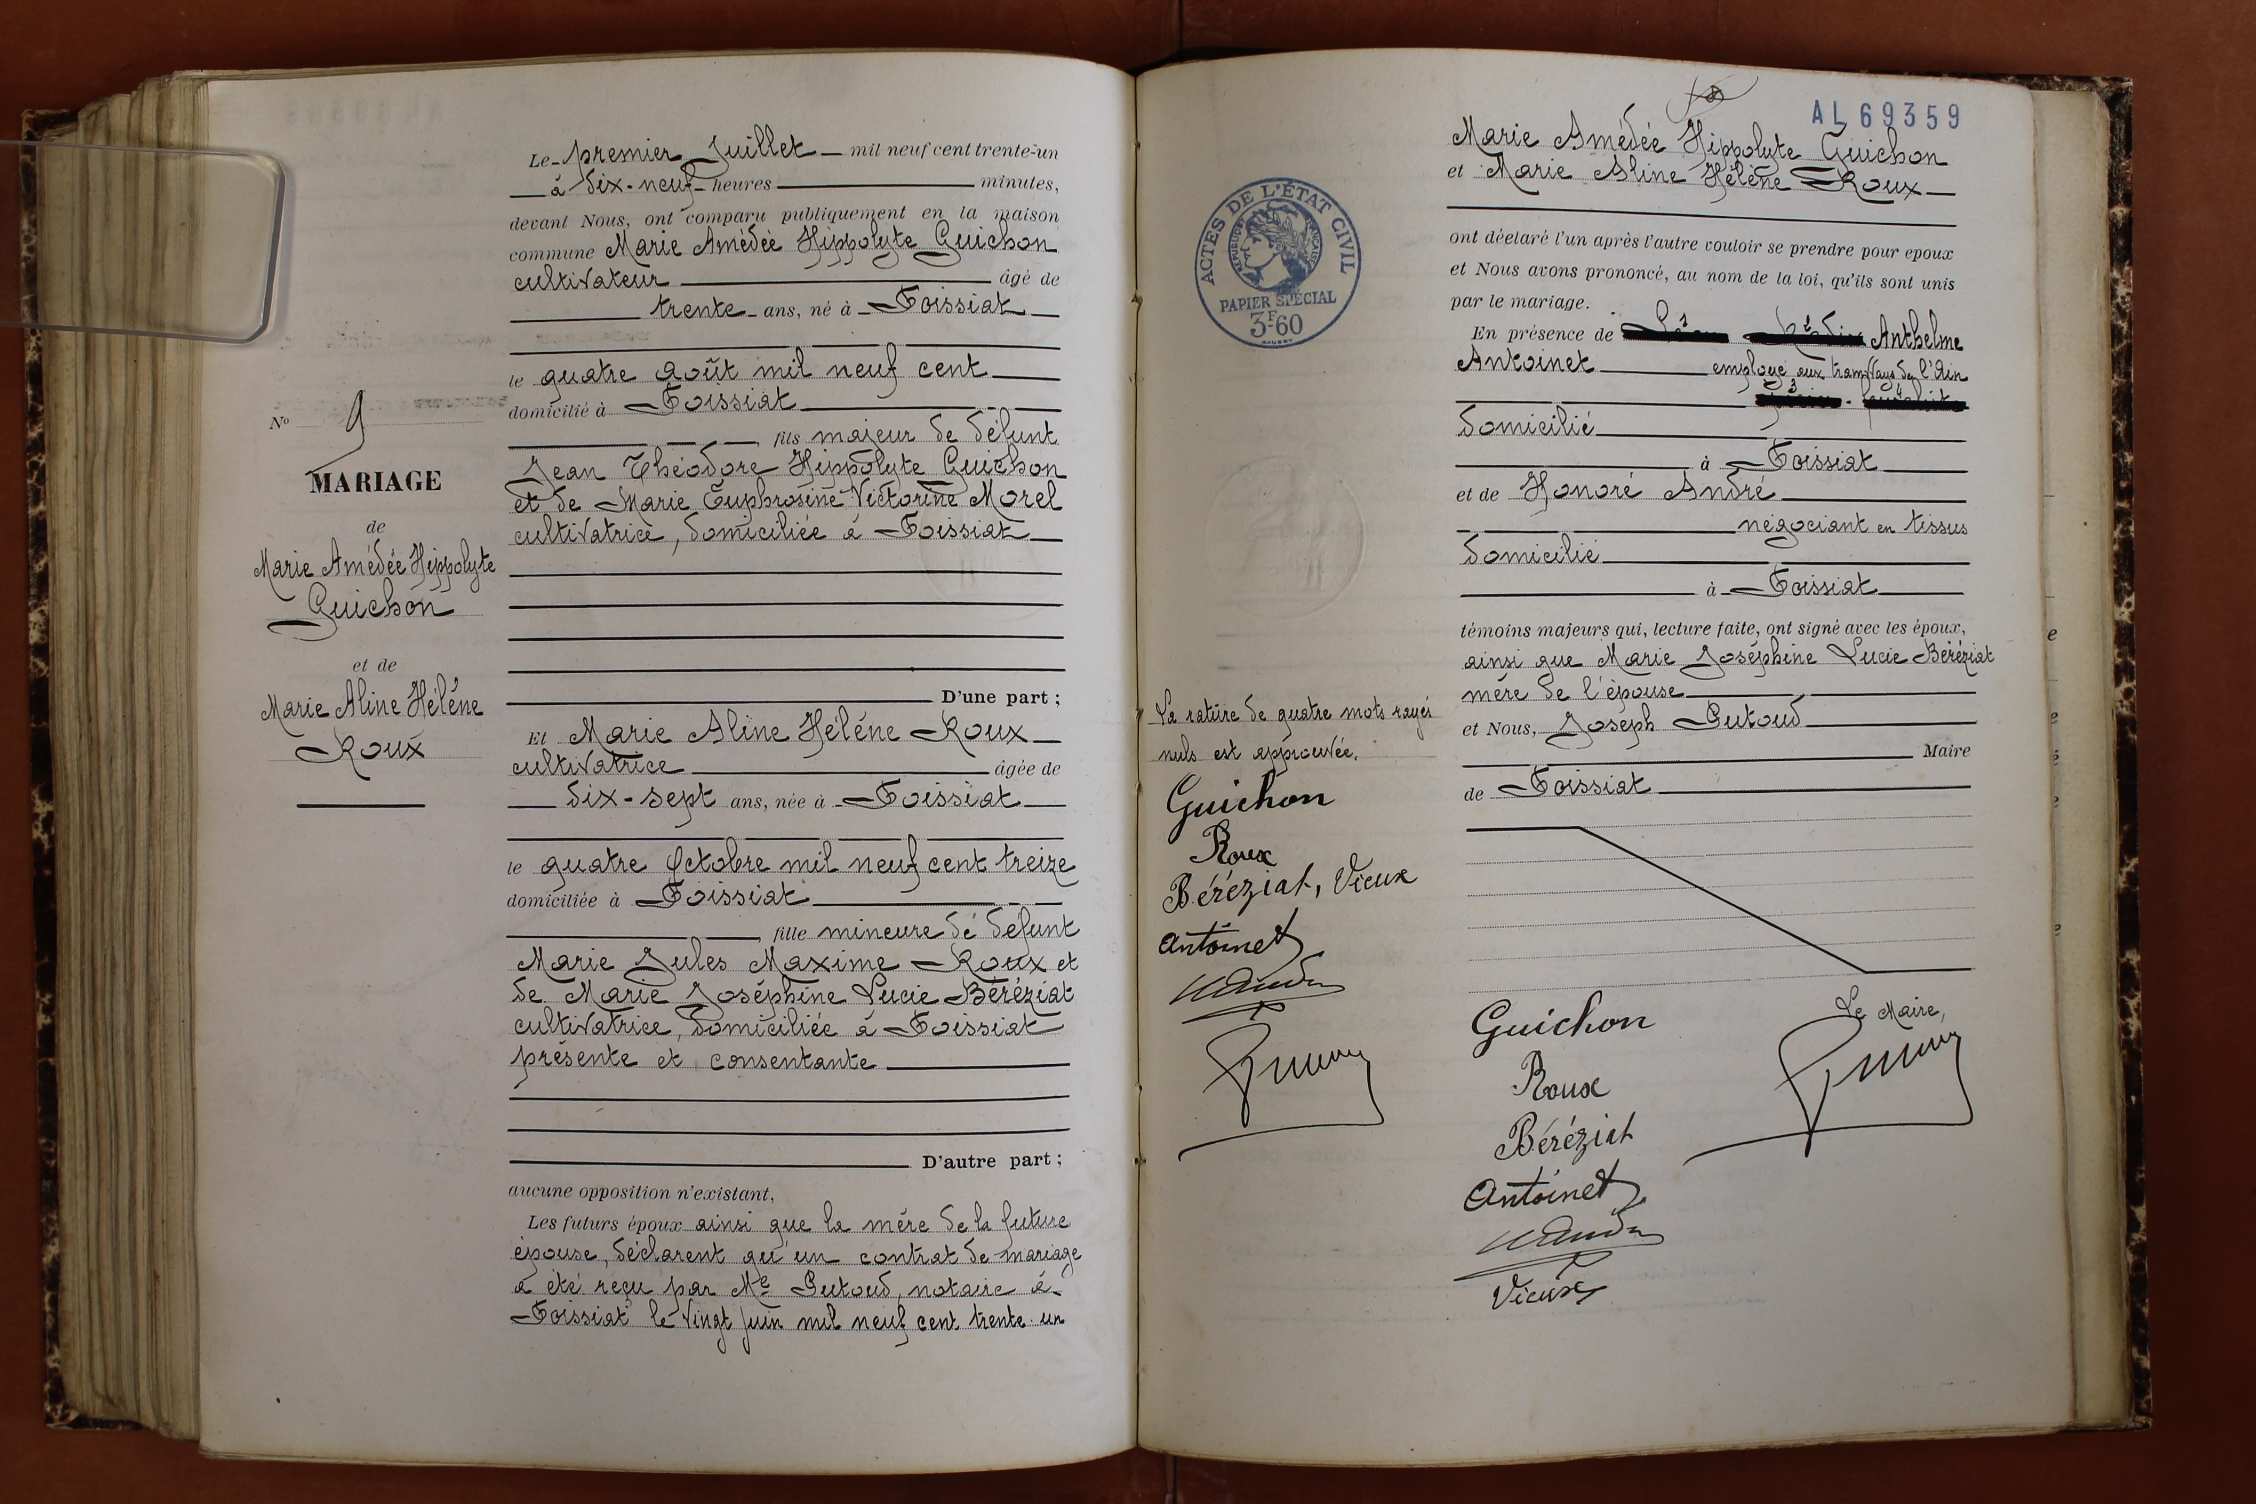 Le premier Juillet mil neuf cent trente-un
à dix-neuf heures minutes,
devant Nous, ont comparu publiquement en la maison
commune Marie Amédée Hippolyte Guichon
cultivateur âgé de
trente ans, né à Foissiat
le quatre août mil neuf cent
domicilié à Foissiat
fils majeur de défunt
Jean Théodore Hippolyte Guichon
et de Marie Euphrosine Victorine Morel
cultivatrice, domiciliée à Foissiat
D'une part ;
Et Marie Aline Hélène Roux
cultivatrice âgée de
dix-sept ans, née à Foissiat
le quatre Octobre mil neuf cent treize
domiciliée à Foissiat
fille mineure de défunt
Marie Jules Maxime Roux et
de Marie Joséphine Lucie Béréziat
cultivatrice, domiciliée à Foissiat
présente et consentante
D'autre part ;
aucune opposition n'existant,
Les futurs époux ainsi que la mère de la future
épouse, déclarent qu'un contrat de mariage
a été reçu par Me Gutoud, notaire à
Foissiat le vingt juin mil neuf cent trente-un
No 9
MARIAGE
de
Marie Amédée Hippolyte
Guichon
et de
Marie Aline Hélène
Roux
AL 69359
Marie Amédée Hippolyte Guichon
et Marie Aline Hélène Roux
ont déclaré l'un après l'autre vouloir se prendre pour epoux
et Nous avons prononcé, au nom de la loi, qu'ils sont unis
par le mariage.
En présence de Anthelme
Antoinet employé aux tramways de l'Ain
domicilié
à Foissiat
et de Honoré André
négociant en tissus
domicilié
à Foissiat
témoins majeurs qui, lecture faite, ont signé avec les époux,
ainsi que Marie Joséphine Lucie Béréziat
mère de l'épouse
et Nous, Joseph Gutoud
Maire
de Foissiat
Le Maire,
Guichon
Roux
Béréziat
Antoinet
Vieux
ACTES DE L'ÉTAT CIVIL
RÉPUBLIQUE FRANÇAISE
PAPIER SPÉCIAL
3F60
La rature de quatre mots rayés
nuls est approuvée.
Guichon
Roux
Béréziat, Vieux
Antoinet